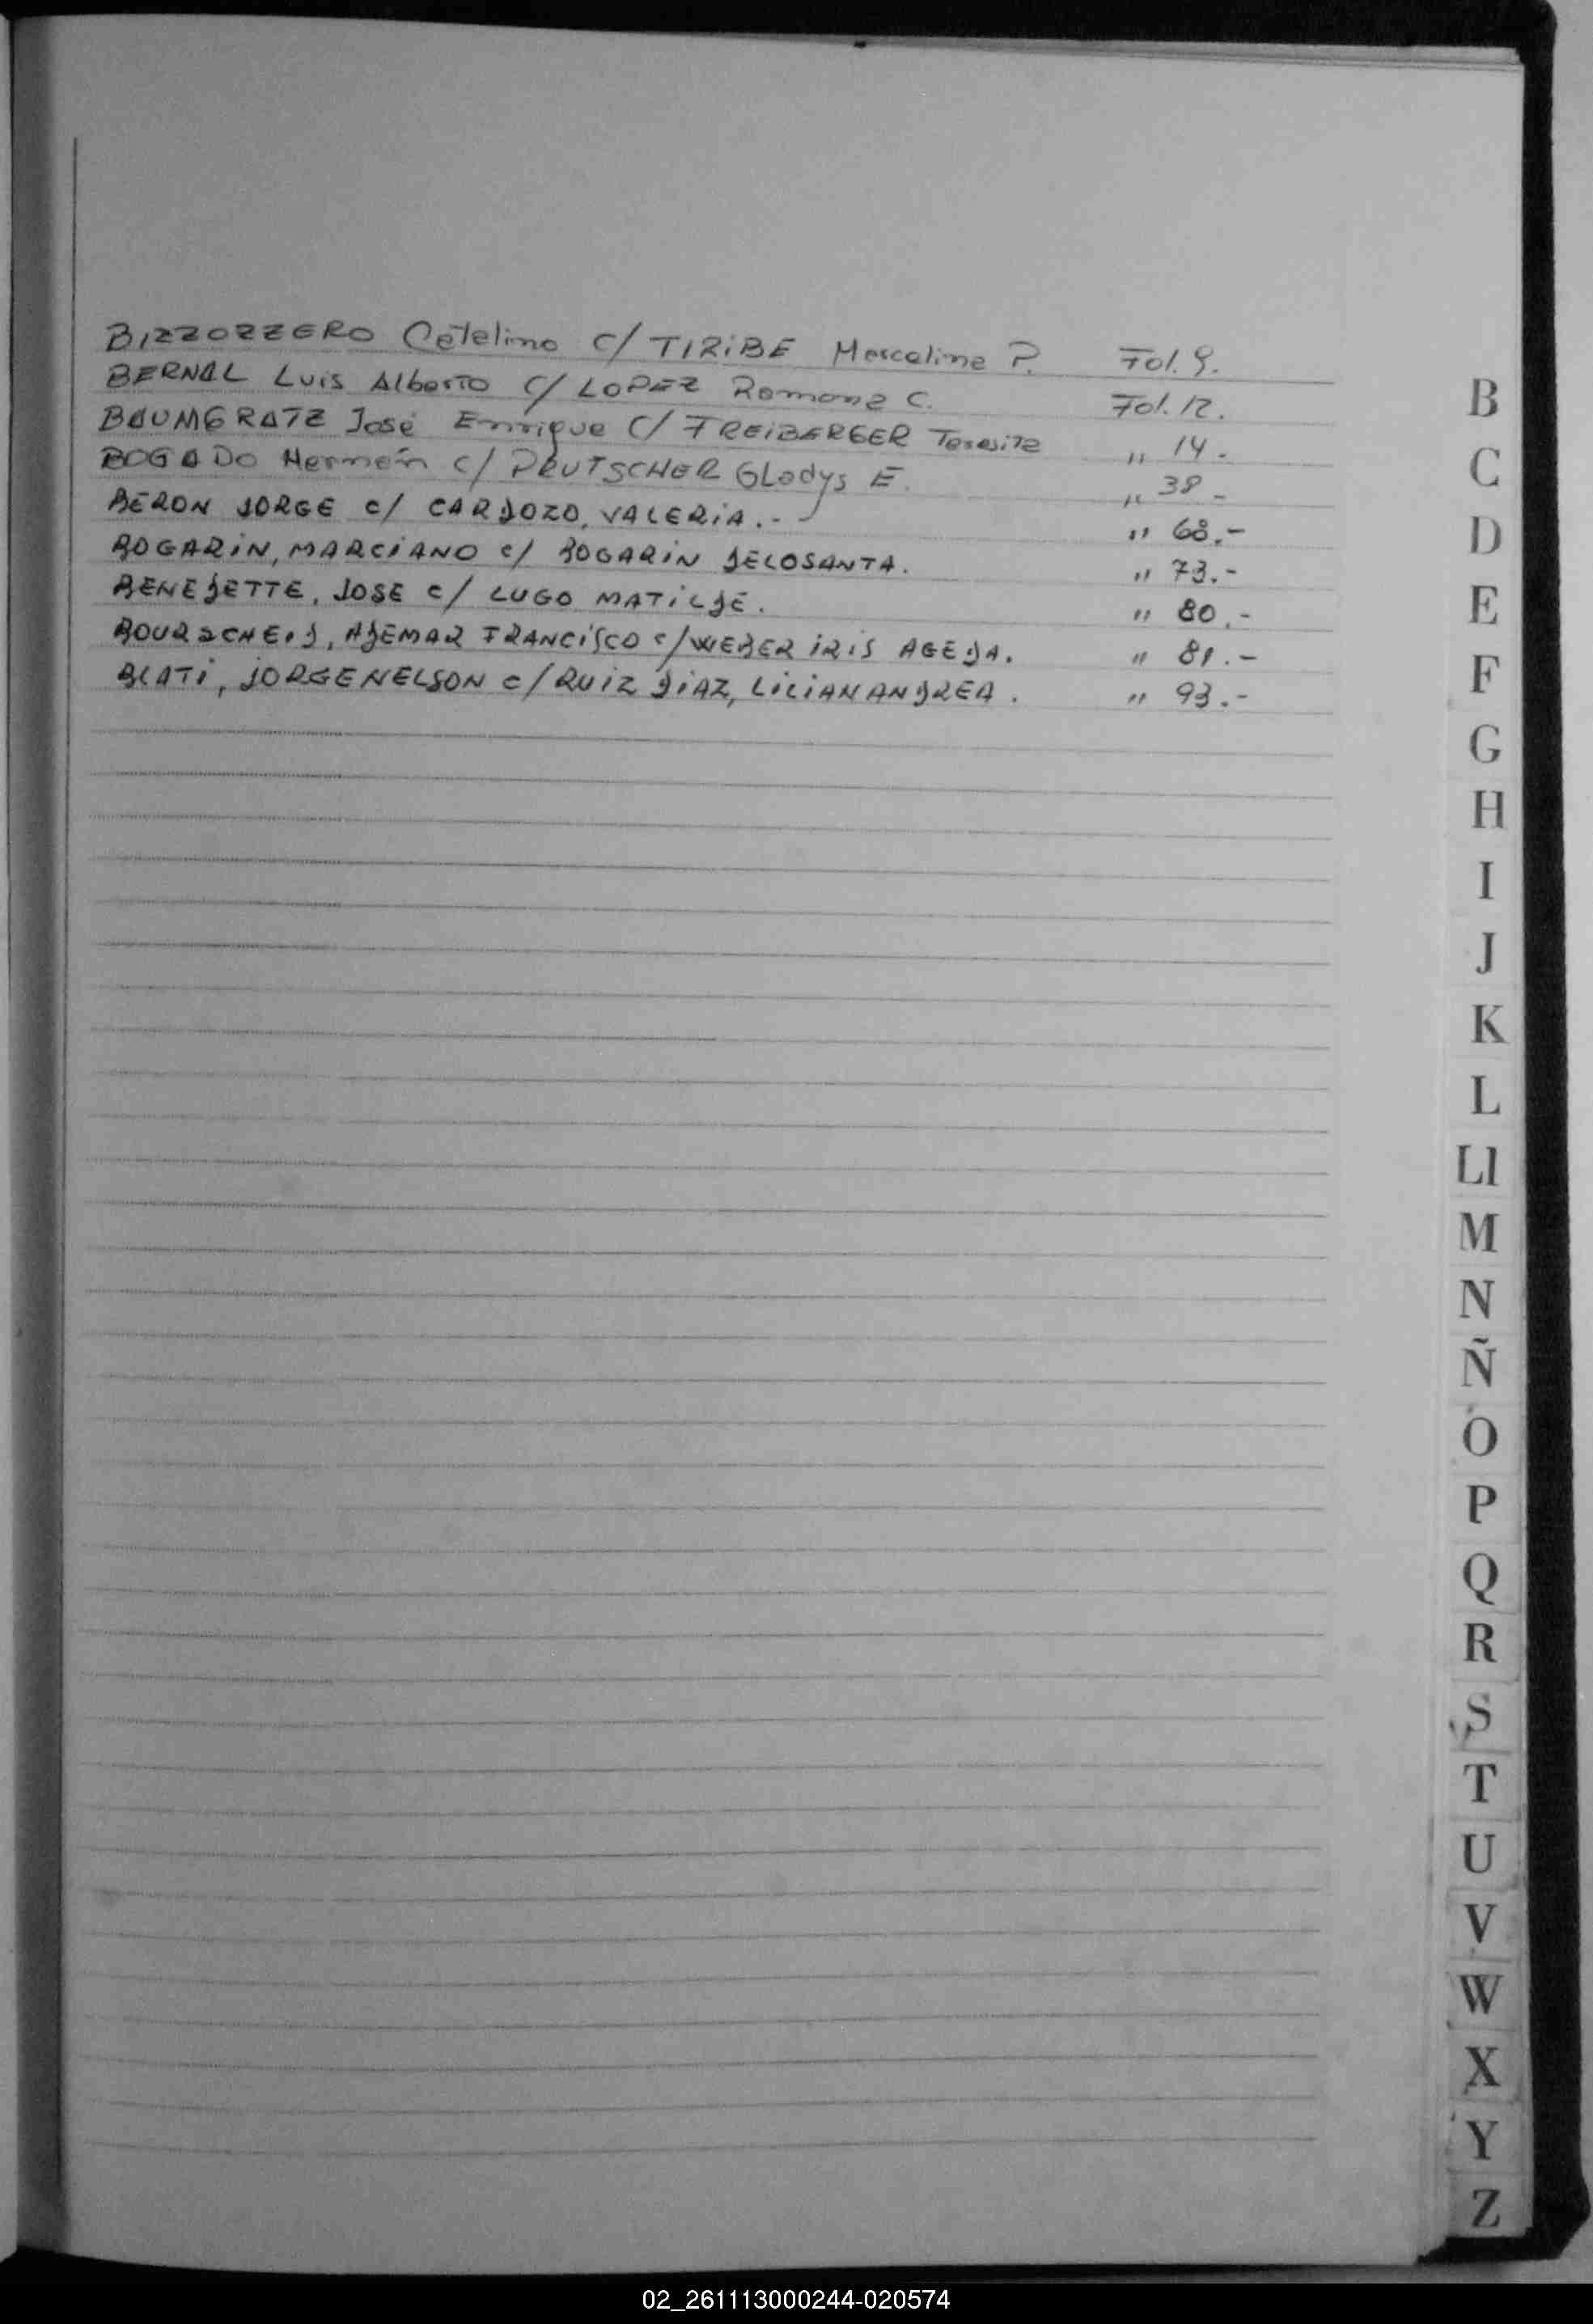 BIZZOZZERO Cetelino C/ TIRIBE Marcelina P. Fol. 9.
BERNAL Luis Alberto C/ LOPEZ Ramona C. Fol. 12.
BAUMGRATZ José Enrique C/ FREIBERGER Teresita " 14.
BOGADO Hernein C/ DEUTSCHER GLadys E. " 38 -
BERON JORGE C/ CARDOZO, VALERIA.- " 68.-
BOGARIN, MARCIANO C/ BOGARIN DELOSANTA. " 73.-
BENEDETTE, JOSE C/ LUGO MATILDE. " 80.-
BOURSCHEID, ADEMAR FRANCISCO C/ WEBER IRIS AGEDA. " 81.-
BLATI, JORGE NELSON C/ RUIZ DIAZ, LILIAN ANDREA. " 93.-
B
C
D
E
F
G
H
I
J
K
L
Ll
M
N
Ñ
O
P
Q
R
S
T
U
V
W
X
Y
Z
02_261113000244-020574